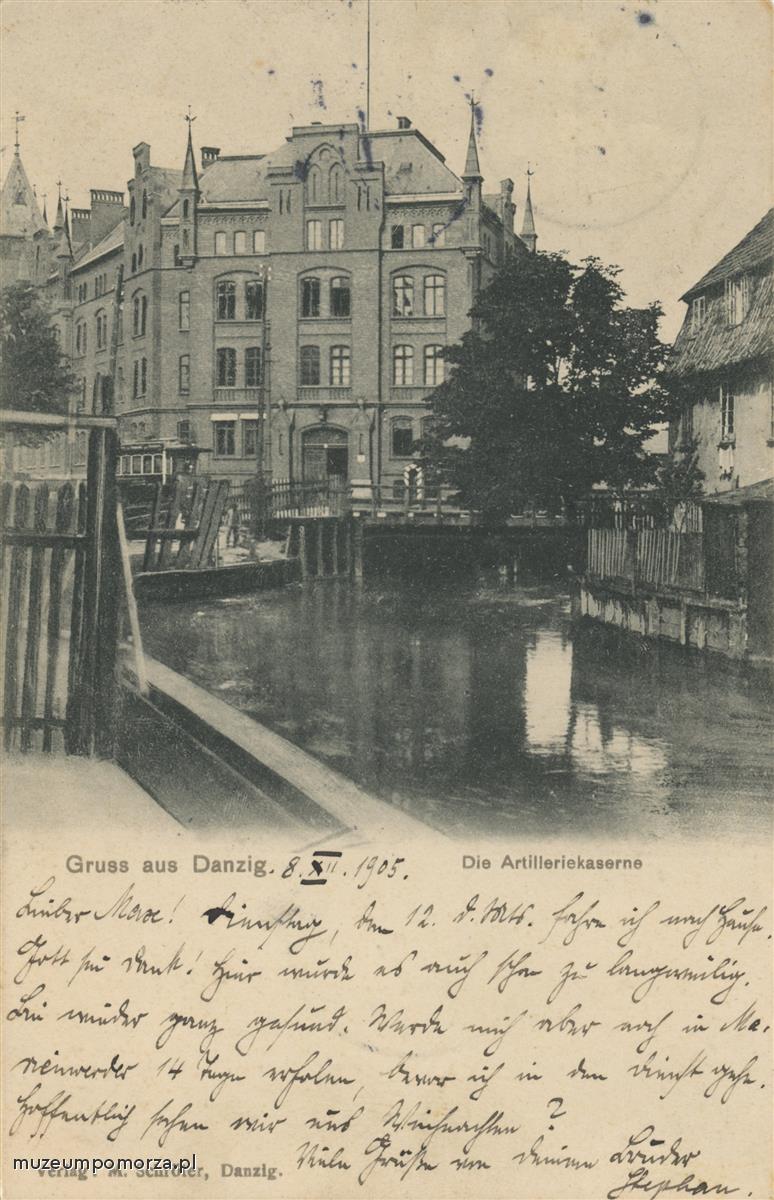 Gruss aus Danzig. 8. XII. 1905. Die Artilleriekaserne
Lieber Max! Dienstag, den 12. d. Mts. fahre ich nach Hause.
Gott sei Dank! Hier wurde es auch schon zu langweilig.
Bin wieder ganz gesund. Werde mich aber noch in Ma-
rienwerder 14 Tage erholen, bevor ich in den Dienst gehe.
Hoffentlich sehen wir uns Weihnachten?
Viele Grüße von deinem Bruder
Stephan.
muzeumpomorza.pl
Verlag: M. Schröter, Danzig.